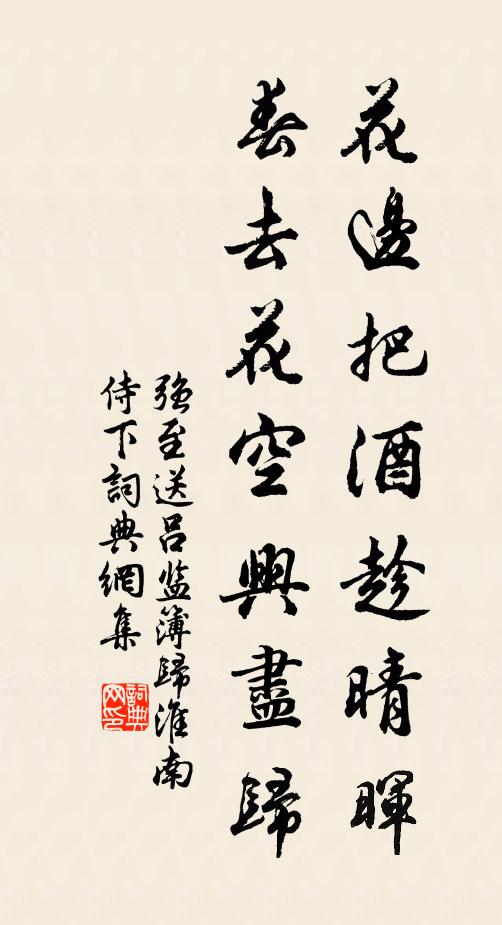 花邊把酒趁晴暉
春去花空興盡歸
强至送吕监簿歸淮南
侍下詞典網集
詞典
网印